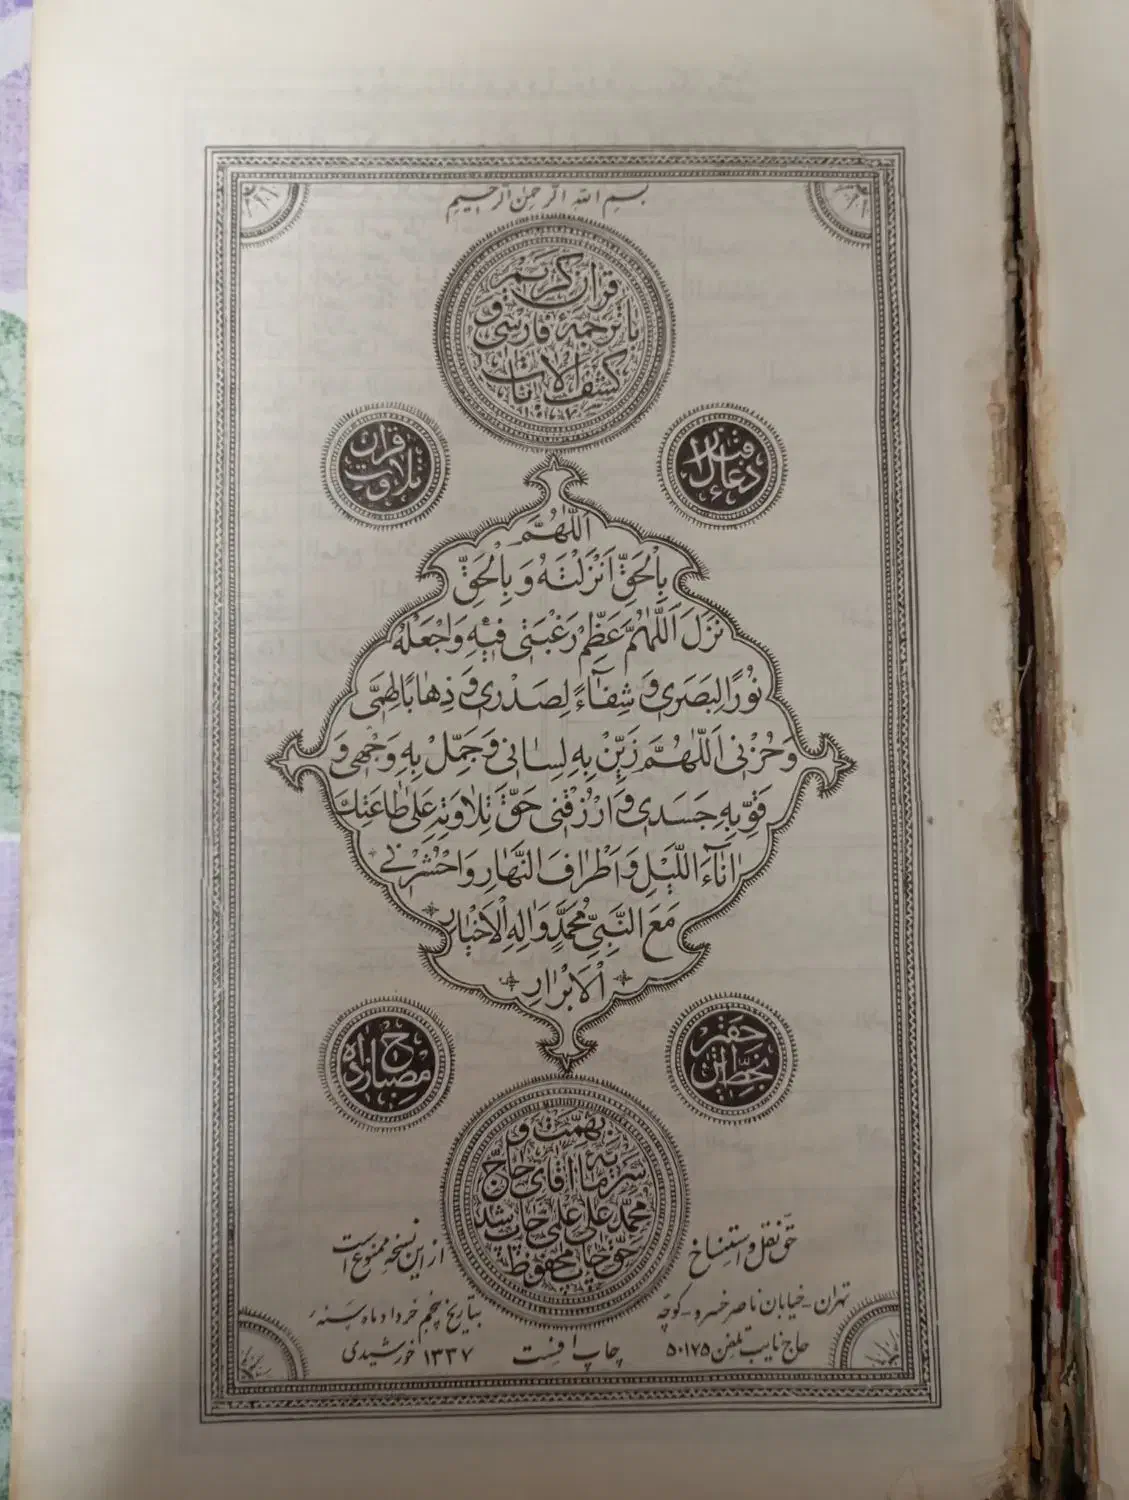 بسم الله الرحمن الرحیم
قرآن کریم
با ترجمهٔ فارسی و
کشف الآیات
دعاء
تلاوت قرآن
اَللّٰهُمَّ
بِالْحَقِّ اَنْزَلْتَهُ وَ بِالْحَقِّ
نَزَلَ اَللّٰهُمَّ عَظِّمْ رَغْبَتی فیهِ وَ اجْعَلْهُ
نُورًا لِبَصَری وَ شِفاءً لِصَدْری وَ ذِهابًا لِهَمّی
وَ حُزْنی اَللّٰهُمَّ زَیِّنْ بِهِ لِسانی وَ جَمِّلْ بِهِ وَجْهی وَ
قَوِّ بِهِ جَسَدی وَ ارْزُقْنی حَقَّ تِلاوَتِهِ عَلٰی طاعَتِكَ
اٰناءَ اللَّیْلِ وَ اَطْرافَ النَّهارِ وَ احْشُرْنی
مَعَ النَّبِیِّ مُحَمَّدٍ وَ اٰلِهِ الْاَخْیارِ
الْاَبْرارِ
بخط حقیر
مصباح زاده
بهمت و
سرمایه آقای حاج
محمد علی علمی چاپ شد
حق چاپ محفوظ
حق نقل و استنساخ
از این نسخه ممنوع است
تهران - خیابان ناصر خسرو - کوچه
حاج نایب تلفن ۵۰۱۷۵
چاپ افست
بتاریخ پنجم خرداد ماه سنهٔ
۱۳۳۷ خورشیدی